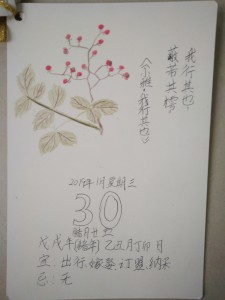 我行其也,
蔽芾其樗。
《小雅·我行其也》
2019年1月星期三
30
腊月廿五
戊戌年 乙丑月丁卯日
宜:出行.嫁娶.订盟.纳采
忌:无